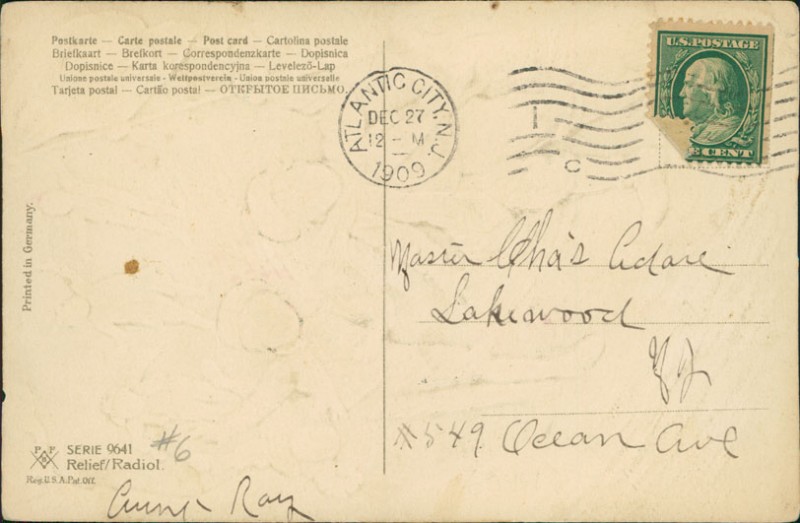 Postkarte – Carte postale – Post card – Cartolina postale
Briefkaart – Brefkort – Correspondenzkarte – Dopisnica
Dopisnice – Karta korespondencyjna – Levelező-Lap
Unione postale universale - Weltpostverein - Union postale universelle
Tarjeta postal – Cartão postal – ОТКРЫТОЕ ПИСЬМО.
ATLANTIC CITY, N.J.
DEC 27
12 – M
1909
U.S. POSTAGE
E CENT
Printed in Germany.
Master Cha's Adare
Lakewood
N J
#549 Ocean Ave
P F B
SERIE 9641
Relief/Radiol.
Reg. U.S.A. Pat. Off.
#6
Ray